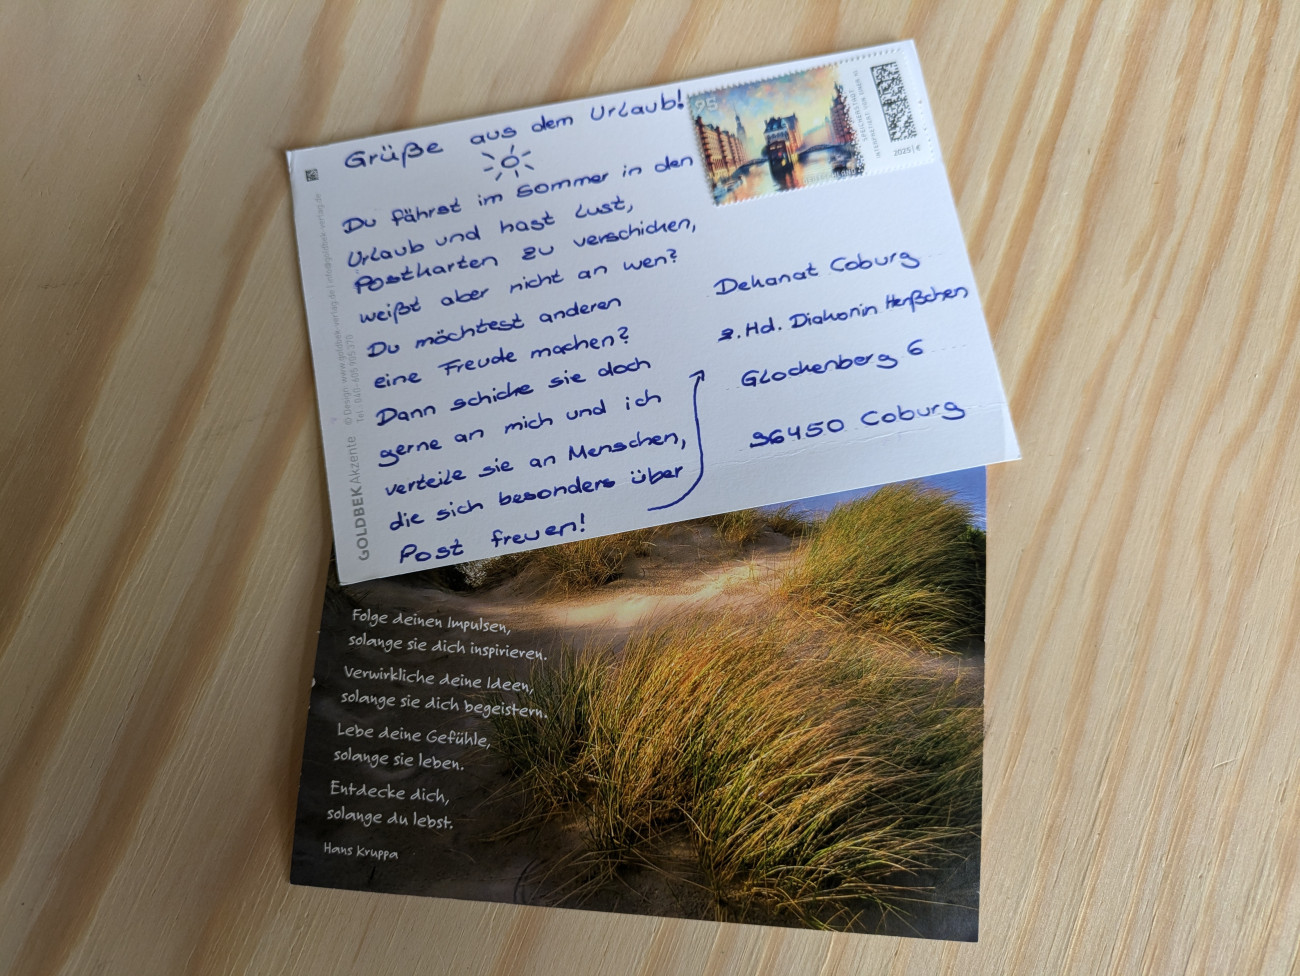 Grüße aus dem Urlaub!
Du fährst im Sommer in den
Urlaub und hast Lust,
Postkarten zu verschicken,
weißt aber nicht an wen?
Du möchtest anderen
eine Freude machen?
Dann schicke sie doch
gerne an mich und ich
verteile sie an Menschen,
die sich besonders über
Post freuen!
95
SPEICHERSTADT
INTERPRETIERT VON EINER KI
2025 | €
Dekanat Coburg
z. Hd. Diakonin Herßchen
Glockenberg 6
96450 Coburg
GOLDBEK Akzente
© Design: www.goldbek-verlag.de | info@goldbek-verlag.de
Folge deinen Impulsen,
solange sie dich inspirieren.
Verwirkliche deine Ideen,
solange sie dich begeistern.
Lebe deine Gefühle,
solange sie leben.
Entdecke dich,
solange du lebst.
Hans Kruppa